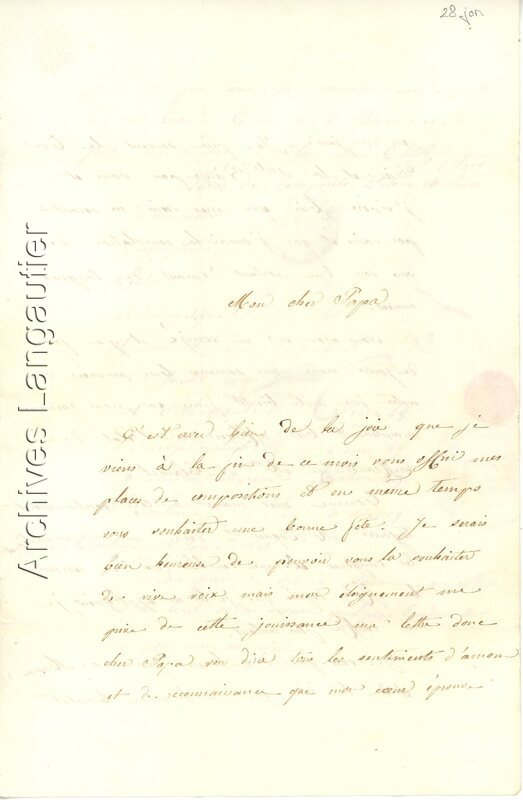 28 jon
Archives Langautier
Mon cher Papa
C'est avec bien de la joie que je
viens à la fin de ce mois vous offrir mes
places de compositions et en meme temps
vous souhaiter une bonne fête. Je serais
bien heureuse de pouvoir vous la souhaiter
de vive voix mais mon eloignement me
prive de cette jouissance ma lettre donc
cher Papa vous dira tous les sentiments d'amour
et de reconnaissance que mon cœur éprouve